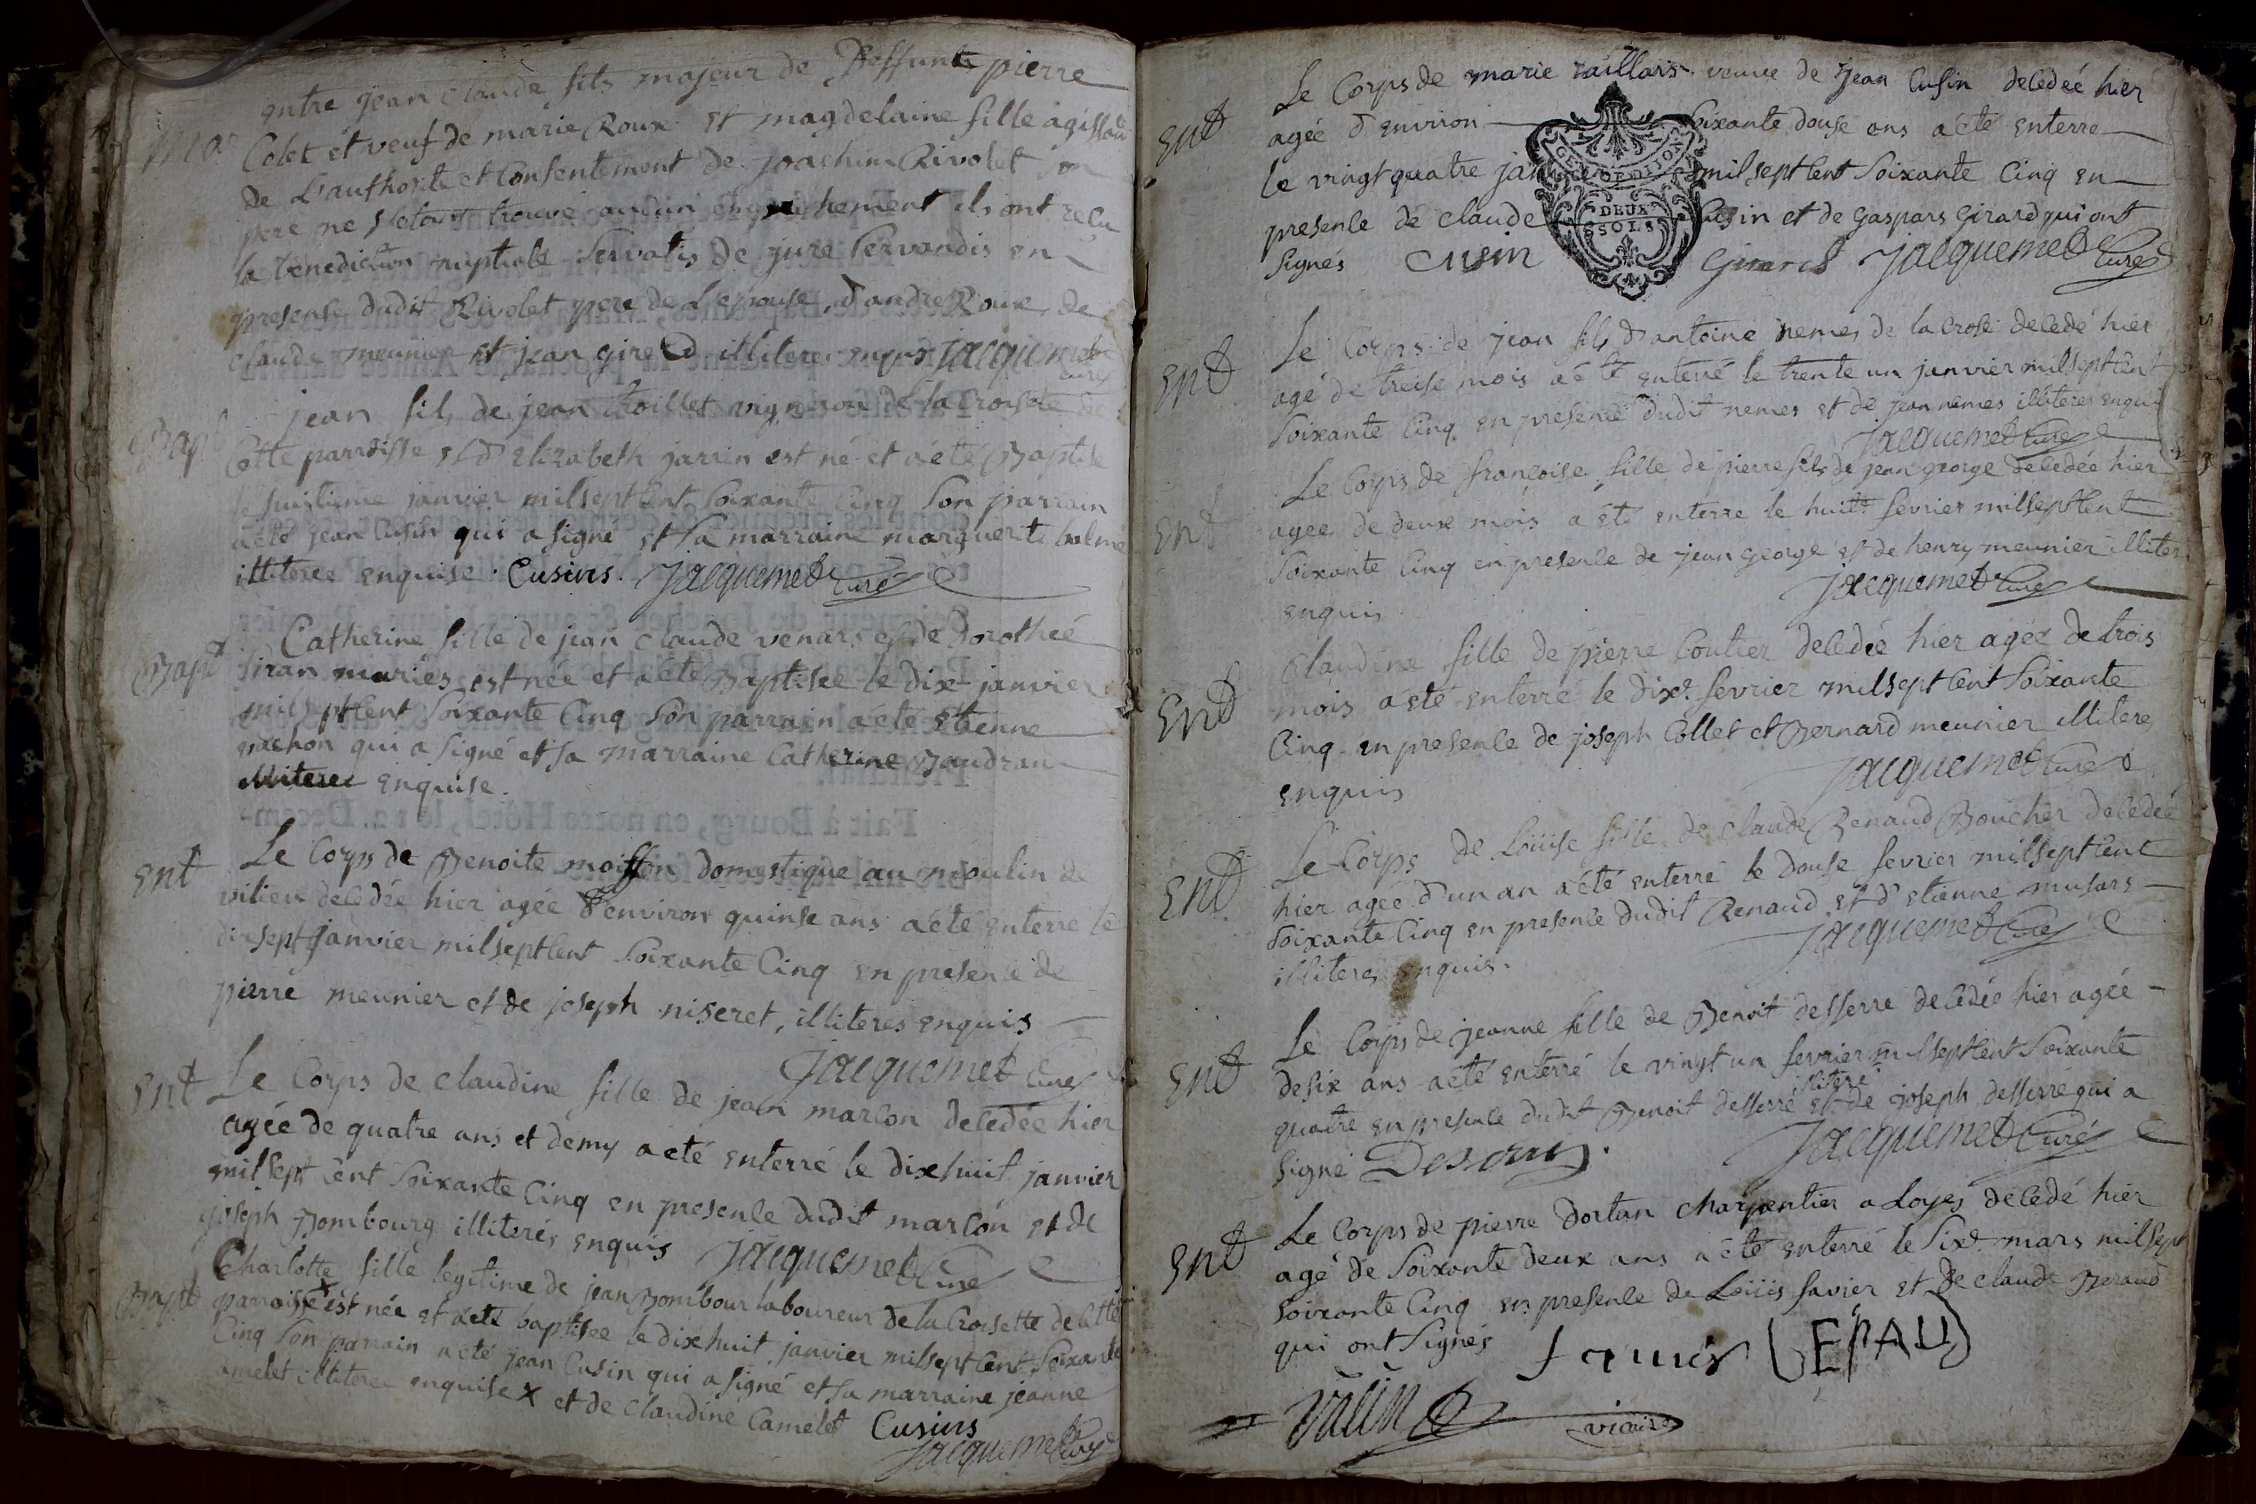 entre jean claude fils majeur de deffunt pierre
Mar Colet et veuf de marie Roux et magdelaine fille agissant
de L'authorite et Consentement de joachim Rivolet son
pere ne s'etant trouvé aucun empechement ils ont recu
la benediction nuptiale servatis de jure servandis en
presence dudit Rivolet pere de L'epouse, d'andre Roux, de
claude meunier et jean girerd illiteres enquis jacquemet
curé
jean fils de jean thoillet vigneron de la Croisete de
Bapt Cette parroisse et d'Elizabeth garrin est né et a été Baptisé
le huitieme janvier milseptcent soixante Cinq son parrain
a été jean Cusin qui a signé et sa marraine marguerite balme
illiteree enquise. Cusins. jacquemet Curé
Catherine fille de jean claude venars et de Dorothée
Bapt Siran mariés est née et a été Baptisée le dix janvier
milseptcent soixante Cinq son parrain a été Etienne
enchon qui a signé et sa marraine Catherine Baudran
illiteree enquise.
Ent Le Corps de Benoite moisson domestique au moulin de
vilieu decedée hier agée d'environ quinse ans a été enterré le
dixsept janvier milseptcent soixante Cinq en presence de
pierre meunier et de joseph niseret, illiteres enquis
jacquemet Curé
Ent Le Corps de claudine fille de jean marcon decedée hier
agée de quatre ans et demy a eté enterré le dixhuit janvier
milsept cent soixante Cinq en presence dudit marcon et de
joseph Bombourg illiterés enquis jacquemet Curé
Charlotte fille legitime de jean Bombour laboureur de la Croisette de cette
Bapt parroisse x est née et a eté baptisee le dixhuit janvier milseptcent soixante
Cinq son parrain a eté jean Cusin qui a signé et sa marraine jeanne
amelet illiteree enquise x et de claudine Camelet Cusins
jacquemet Curé
Le Corps de marie raillars veuve de jean Cusin decedeé hier
Ent agée d'environ soixante douse ans a été enterré
le vingt quatre janvier milseptcent soixante Cinq en
GEN DEUX SOLS
presence de claude Cusin et de gaspars girard qui ont
signes cusin Girard jacquemet Curé
Le Corps de jean fils d'antoine nemes de la Crose decedé hier
Ent agé de treise mois a été enterré le trente un janvier milseptcent
soixante Cinq en presence dudit nemes et de jean nemes illiteres enquis
jacquemet Curé
Le Corps de françoise fille de pierre fils de jean george decedée hier
Ent agee de deux mois a été enterré le huite fevrier milseptcent
soixante Cinq en presence de jean george et de henry meunier illiteres
enquis jacquemet Curé
Claudine fille de pierre Coutier decedée hier agée de trois
Ent mois a eté enterré le dixe fevrier milseptcent soixante
Cinq en presence de joseph Collet et Bernard meunier illiteres
enquis jacquemet Curé
Le Corps de Louise fille de claude Renaud Boucher decedeé
Ent hier agée d'un an a été enterré le douse fevrier milseptcent
soixante Cinq en presence dudit Renaud et d'etienne musars
illiteres enquis. jacquemet Curé
Le Corps de jeanne fille de Benoit desserre decedée hier agée
Ent de six ans a été enterré le vingt un fevrier milseptcent soixante
quatre en presence dudit Benoit desserre illiteré et de joseph desserre qui a
signé jacquemet Curé
Le Corps de pierre dortan charpentier a Loyes decedé hier
Ent agé de soixante deux ans a été enterré le sixe mars milsept
soixante Cinq en presence de Loüis favier et de claude Beraud
qui ont signés
vicaire